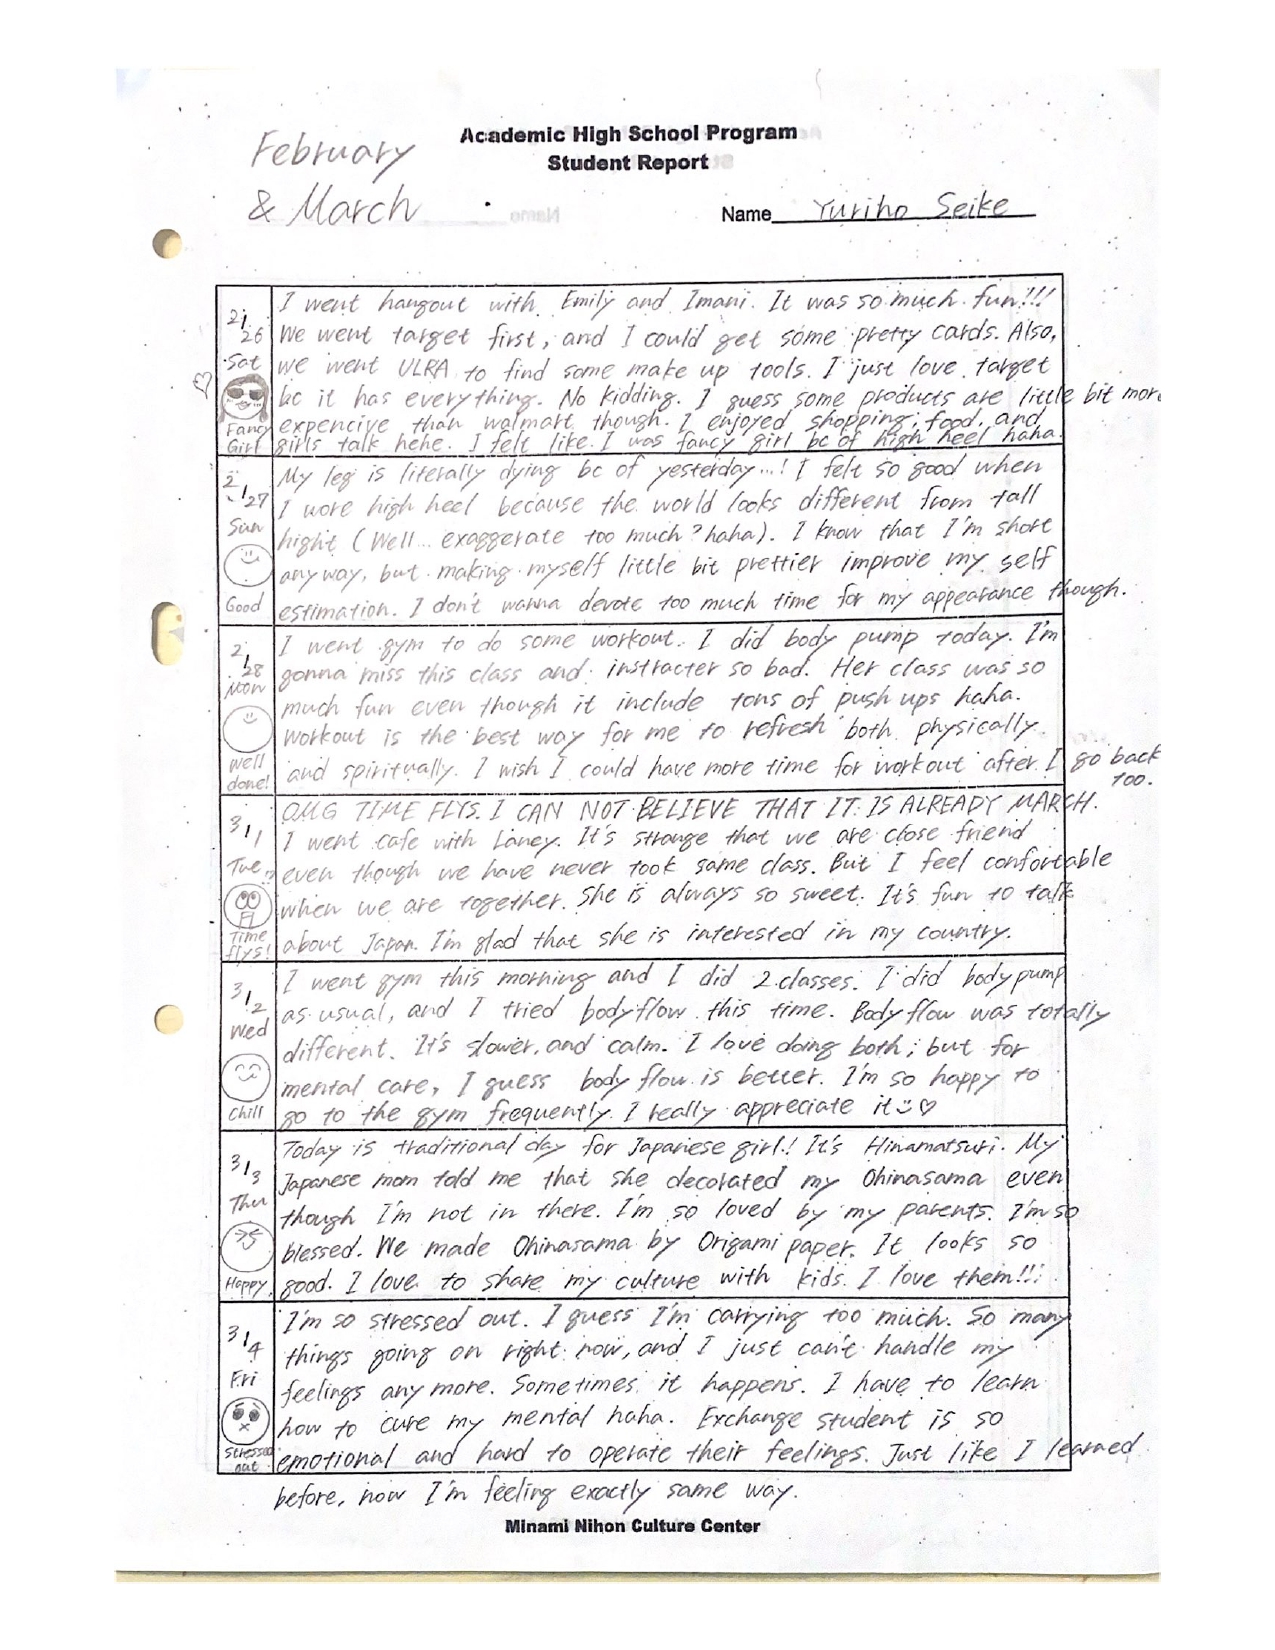 Academic High School Program
Student Report
February
& March
Name Yuriho Seike
2/26
Sat
Fancy
Girl
I went hangout with Emily and Imani. It was so much fun!!!
We went target first, and I could get some pretty cards. Also,
we went ULRA to find some make up tools. I just love target
bc it has everything. No kidding. I guess some products are little bit more
expencive than walmart though. I enjoyed shopping, food, and
girls talk hehe. I felt like I was fancy girl bc of high heel haha.
2/27
Sun
Good
My leg is literally dying bc of yesterday...! I felt so good when
I wore high heel because the world looks different from tall
hight (Well... exaggerate too much? haha). I know that I'm short
anyway, but making myself little bit prettier improve my self
estimation. I don't wanna devote too much time for my appearance though.
2/28
Mon
Well
done!
I went gym to do some workout. I did body pump today. I'm
gonna miss this class and instracter so bad. Her class was so
much fun even though it include tons of push ups haha.
Workout is the best way for me to refresh both physically
and spiritually. I wish I could have more time for workout after I go back
too.
3/1
Tue
Time
flys!
OMG TIME FLYS. I CAN NOT BELIEVE THAT IT IS ALREADY MARCH.
I went cafe with Laney. It's strange that we are close friend
even though we have never took same class. But I feel confortable
when we are together. She is always so sweet. It's fun to talk
about Japan. I'm glad that she is interested in my country.
3/2
Wed
Chill
I went gym this morning and I did 2 classes. I did body pump
as usual, and I tried bodyflow this time. Body flow was totally
different. It's slower, and calm. I love doing both, but for
mental care, I guess body flow is better. I'm so happy to
go to the gym frequently. I really appreciate it ♡
3/3
Thu
Happy
Today is traditional day for Japanese girl! It's Hinamatsuri. My
Japanese mom told me that she decorated my Ohinasama even
though I'm not in there. I'm so loved by my parents. I'm so
blessed. We made Ohinasama by Origami paper. It looks so
good. I love to share my culture with kids. I love them!!!
3/4
Fri
Stressed
out
I'm so stressed out. I guess I'm carrying too much. So many
things going on right now, and I just can't handle my
feelings any more. Sometimes it happens. I have to learn
how to cure my mental haha. Exchange student is so
emotional and hard to operate their feelings. Just like I learned
before, now I'm feeling exactly same way.
Minami Nihon Culture Center